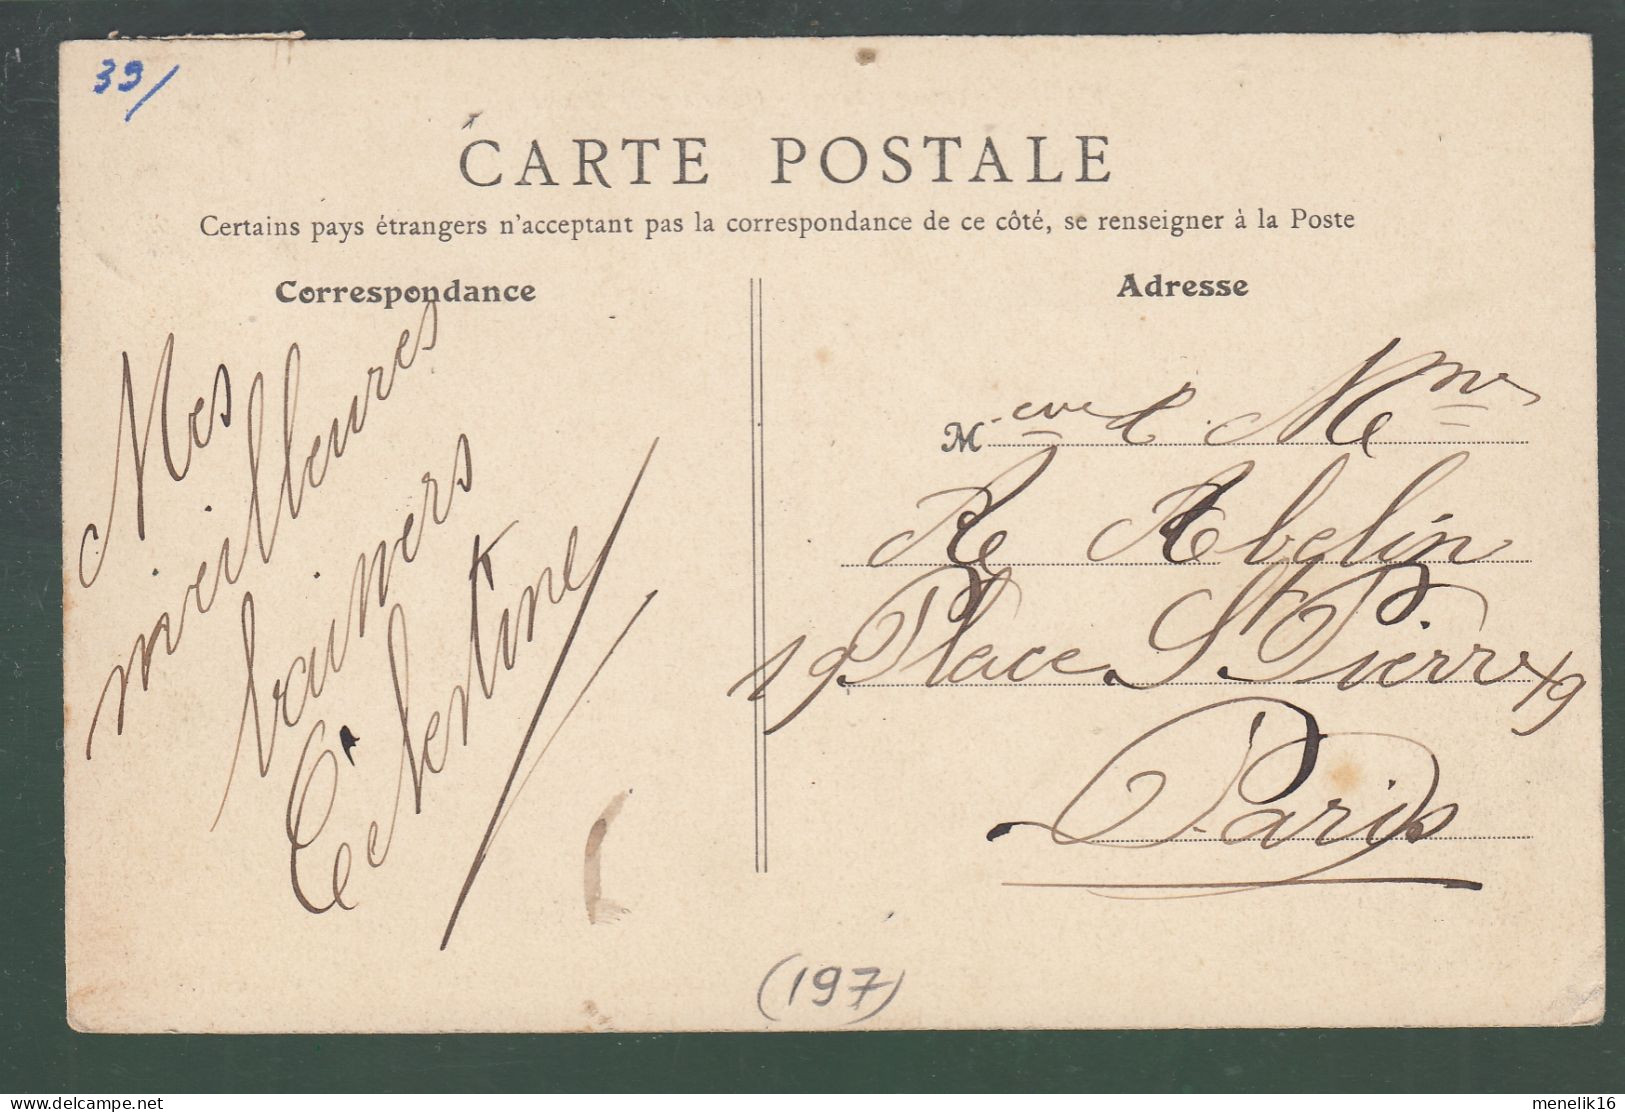 39/
CARTE POSTALE
Certains pays étrangers n'acceptant pas la correspondance de ce côté, se renseigner à la Poste
Correspondance
Mes
meilleures
baisers
Adresse
M
Mme
Abelin
19 Place St Pierre 19
Paris
(197)
delcampe.net
menelik16